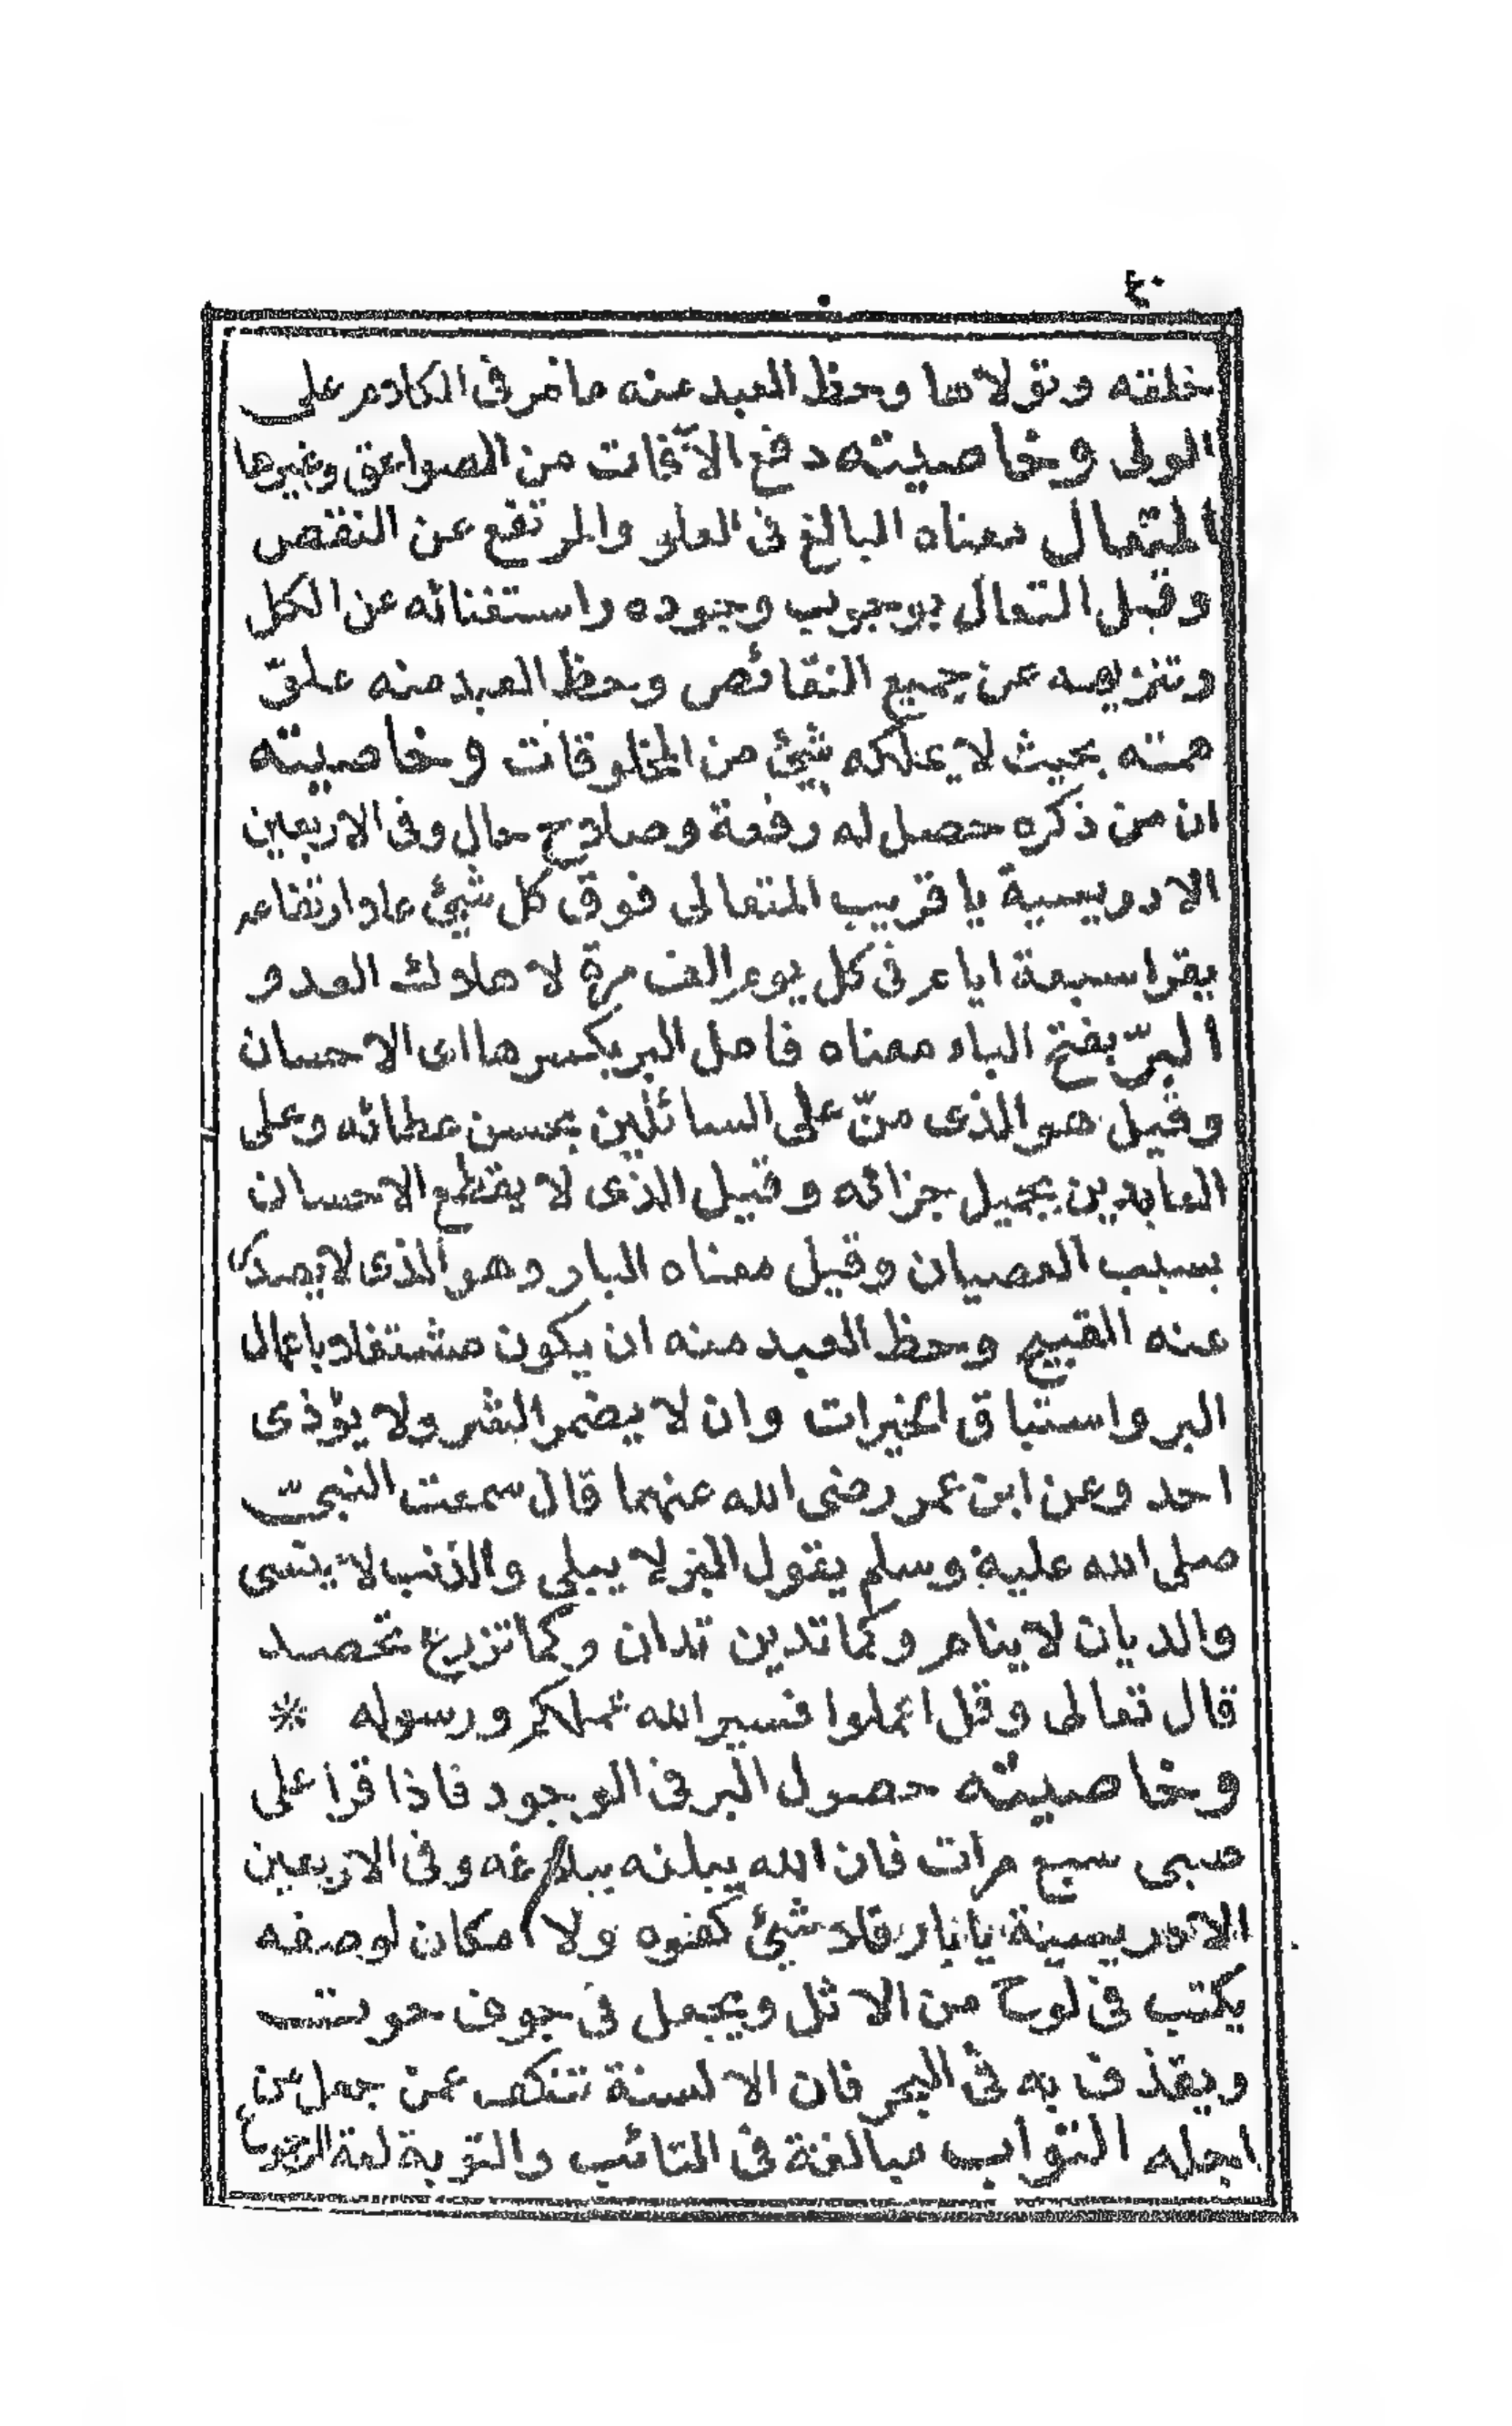 ٤٠
خلقه وتولاها وحظ العبد عنه ما مر فى الكلام على
الولى وخاصيته دفع الآفات من الصواعق وغيرها
المتعال معناه البالغ فى العلو والمرتفع عن النقص
وقيل المتعال بوجوب وجوده واستغنائه عن الكل
وتنزيهه عن جميع النقائص وحظ العبد منه علق
همته بحيث لا يملكه شيئ من المخلوقات وخاصيته
ان من ذكره حصل له رفعة وصلاح حال وفى الاربعين
الادريسية يا قريب المتعالى فوق كل شيئ علو ارتفاعه
يقرا سبعة ايام فى كل يوم الف مرة لاهلاك العدو
البرّ بفتح الباء معناه فاعل البر بكسرها اى الاحسان
وقيل هو الذى منّ على السائلين بحسن عطائه وعلى
العابدين بجميل جزائه وقيل الذى لا يقطع الاحسان
بسبب العصيان وقيل معناه البار وهو الذى لا يصدر
عنه القبيح وحظ العبد منه ان يكون مشتغلا باعمال
البر واستباق الخيرات وان لا يضمر الشر ولا يؤذى
احد وعن ابن عمر رضى الله عنهما قال سمعت النبىّ
صلى الله عليه وسلم يقول البر لا يبلى والذنب لا ينسى
والديان لا ينام وكما تدين تدان وكما تزرع تحصد
قال تعالى وقل اعملوا فسيرالله عملكم ورسوله *
وخاصيته حصول البر فى الوجود فاذا قرا على
صبى سبع مرات فان الله يبلغه بلاغه وفى الاربعين
الادريسية يا بار فلا شيئ كفوه ولا امكان لوصفه
يكتب فى لوح من الاثل ويجعل فى جوف حوت
ويقذف به فى البحر فان الالسنة تنكف عمن جعل من
اجله التواب مبالغة فى التائب والتوبة لغة الرجوع